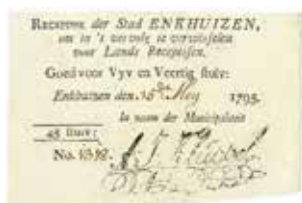 Recepisse der Stad ENKHUIZEN,
om in 't vervolg te verwisselen
voor Lands Recepissen.
Goed voor Vyv en Veertig stuiv:
Enkhuizen den 16de Mey 1795.
In naam der Municipaliteit
45 stuiv:
No.